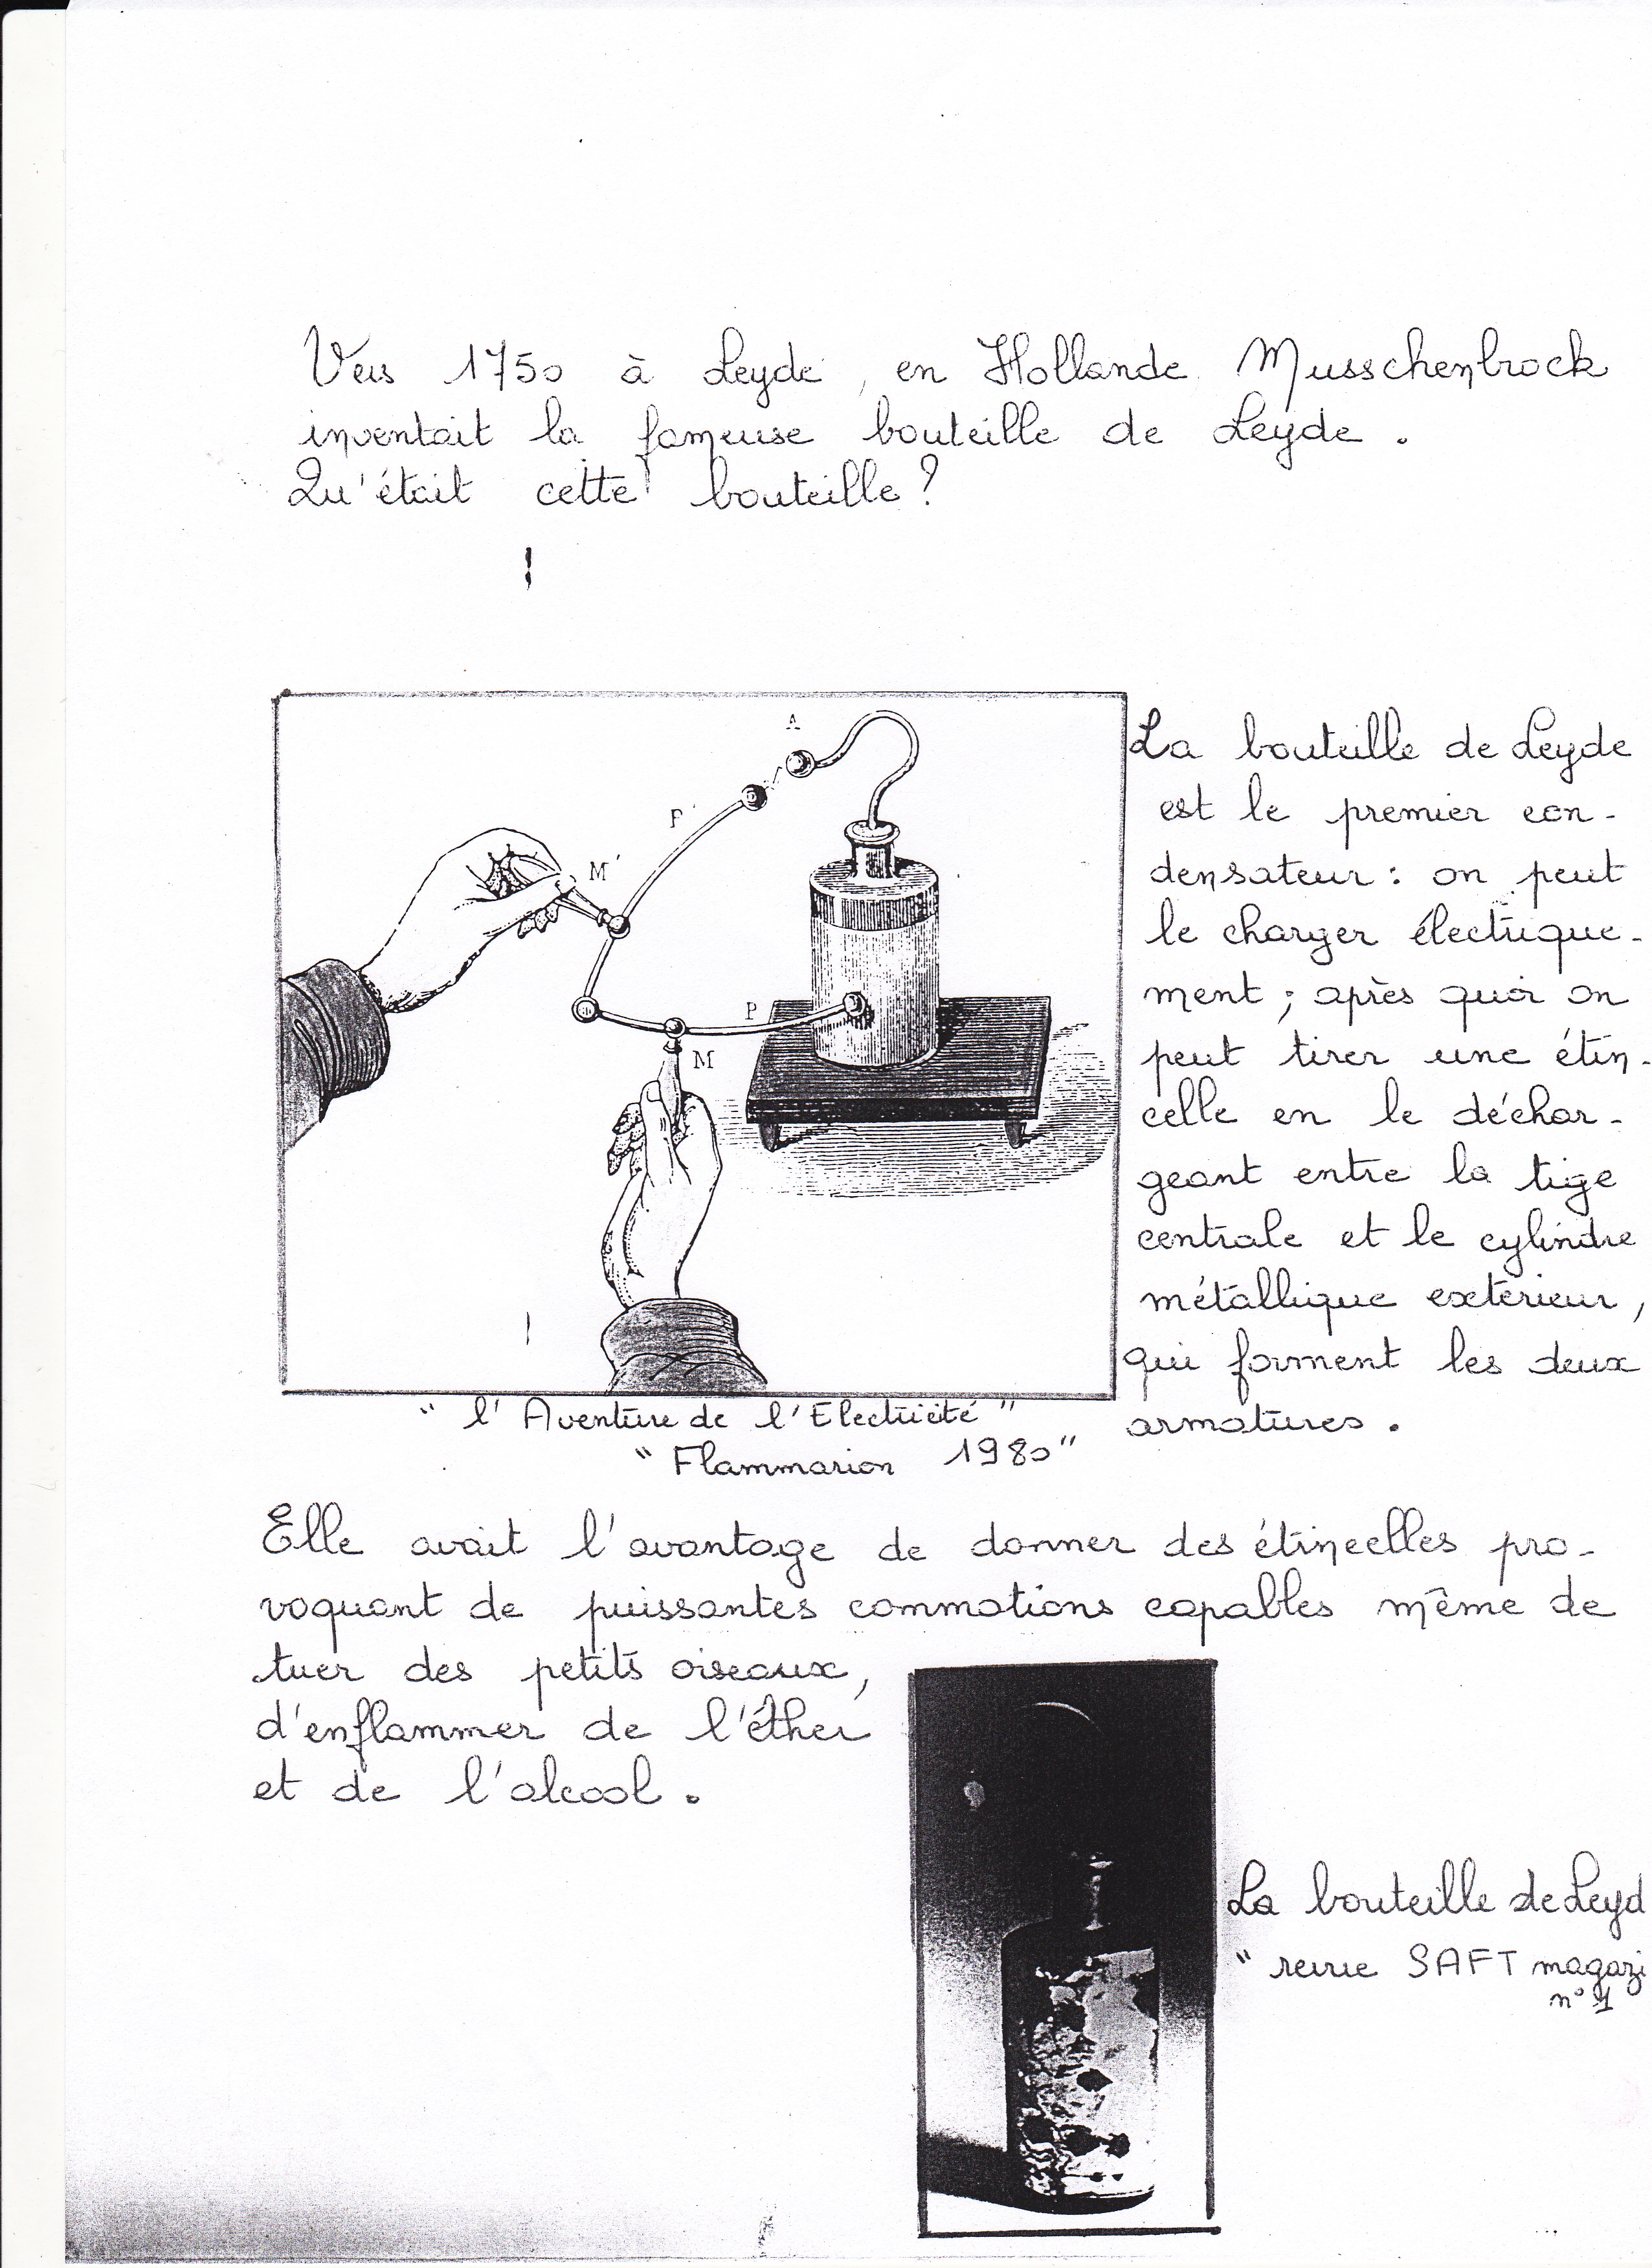 Vers 1750 à Leyde, en Hollande Musschenbrock
inventait la fameuse bouteille de Leyde.
Qu'était cette bouteille ?
A
P'
M'
P
M
La bouteille de Leyde
est le premier con-
densateur : on peut
le charger électrique-
ment ; après quoi on
peut tirer une étin-
celle en le déchar-
geant entre la tige
centrale et le cylindre
métallique extérieur,
qui forment les deux
armatures.
" l'Aventure de l'Electricité "
" Flammarion 1980 "
Elle avait l'avantage de donner des étincelles pro-
voquant de puissantes commotions capables même de
tuer des petits oiseaux,
d'enflammer de l'éther
et de l'alcool.
La bouteille de Leyd
" revue SAFT magazi
n° 1